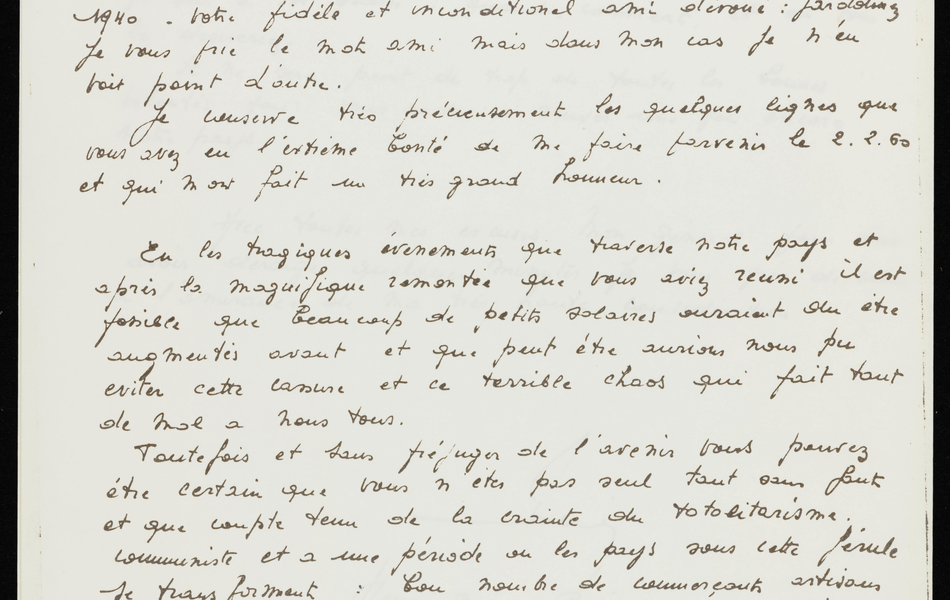 1940 - votre fidèle et inconditionel ami dévoué : pardonnez
Je vous prie le mot ami mais dans mon cas Je n'en
voit point d'autre.
Je conserve très précieusement les quelques lignes que
vous avez eu l'extrême bonté de me faire parvenir le 2.2.60
et qui m'ont fait un très grand honneur.
En les tragiques évenements que traverse notre pays et
après la magnifique remontée que vous aviez reussi il est
possible que beaucoup de petits salaires auraient du être
augmentés avant et que peut être aurions nous pu
eviter cette cassure et ce terrible chaos qui fait tant
de mal a nous tous.
Toutefois et sans préjuger de l'avenir vous pouvez
être certain que vous n'êtes pas seul tant sans faut
et que compte tenu de la crainte du totalitarisme.
communiste et a une période ou les pays sous cette férule
se transforment : bon nombre de commerçants artisans